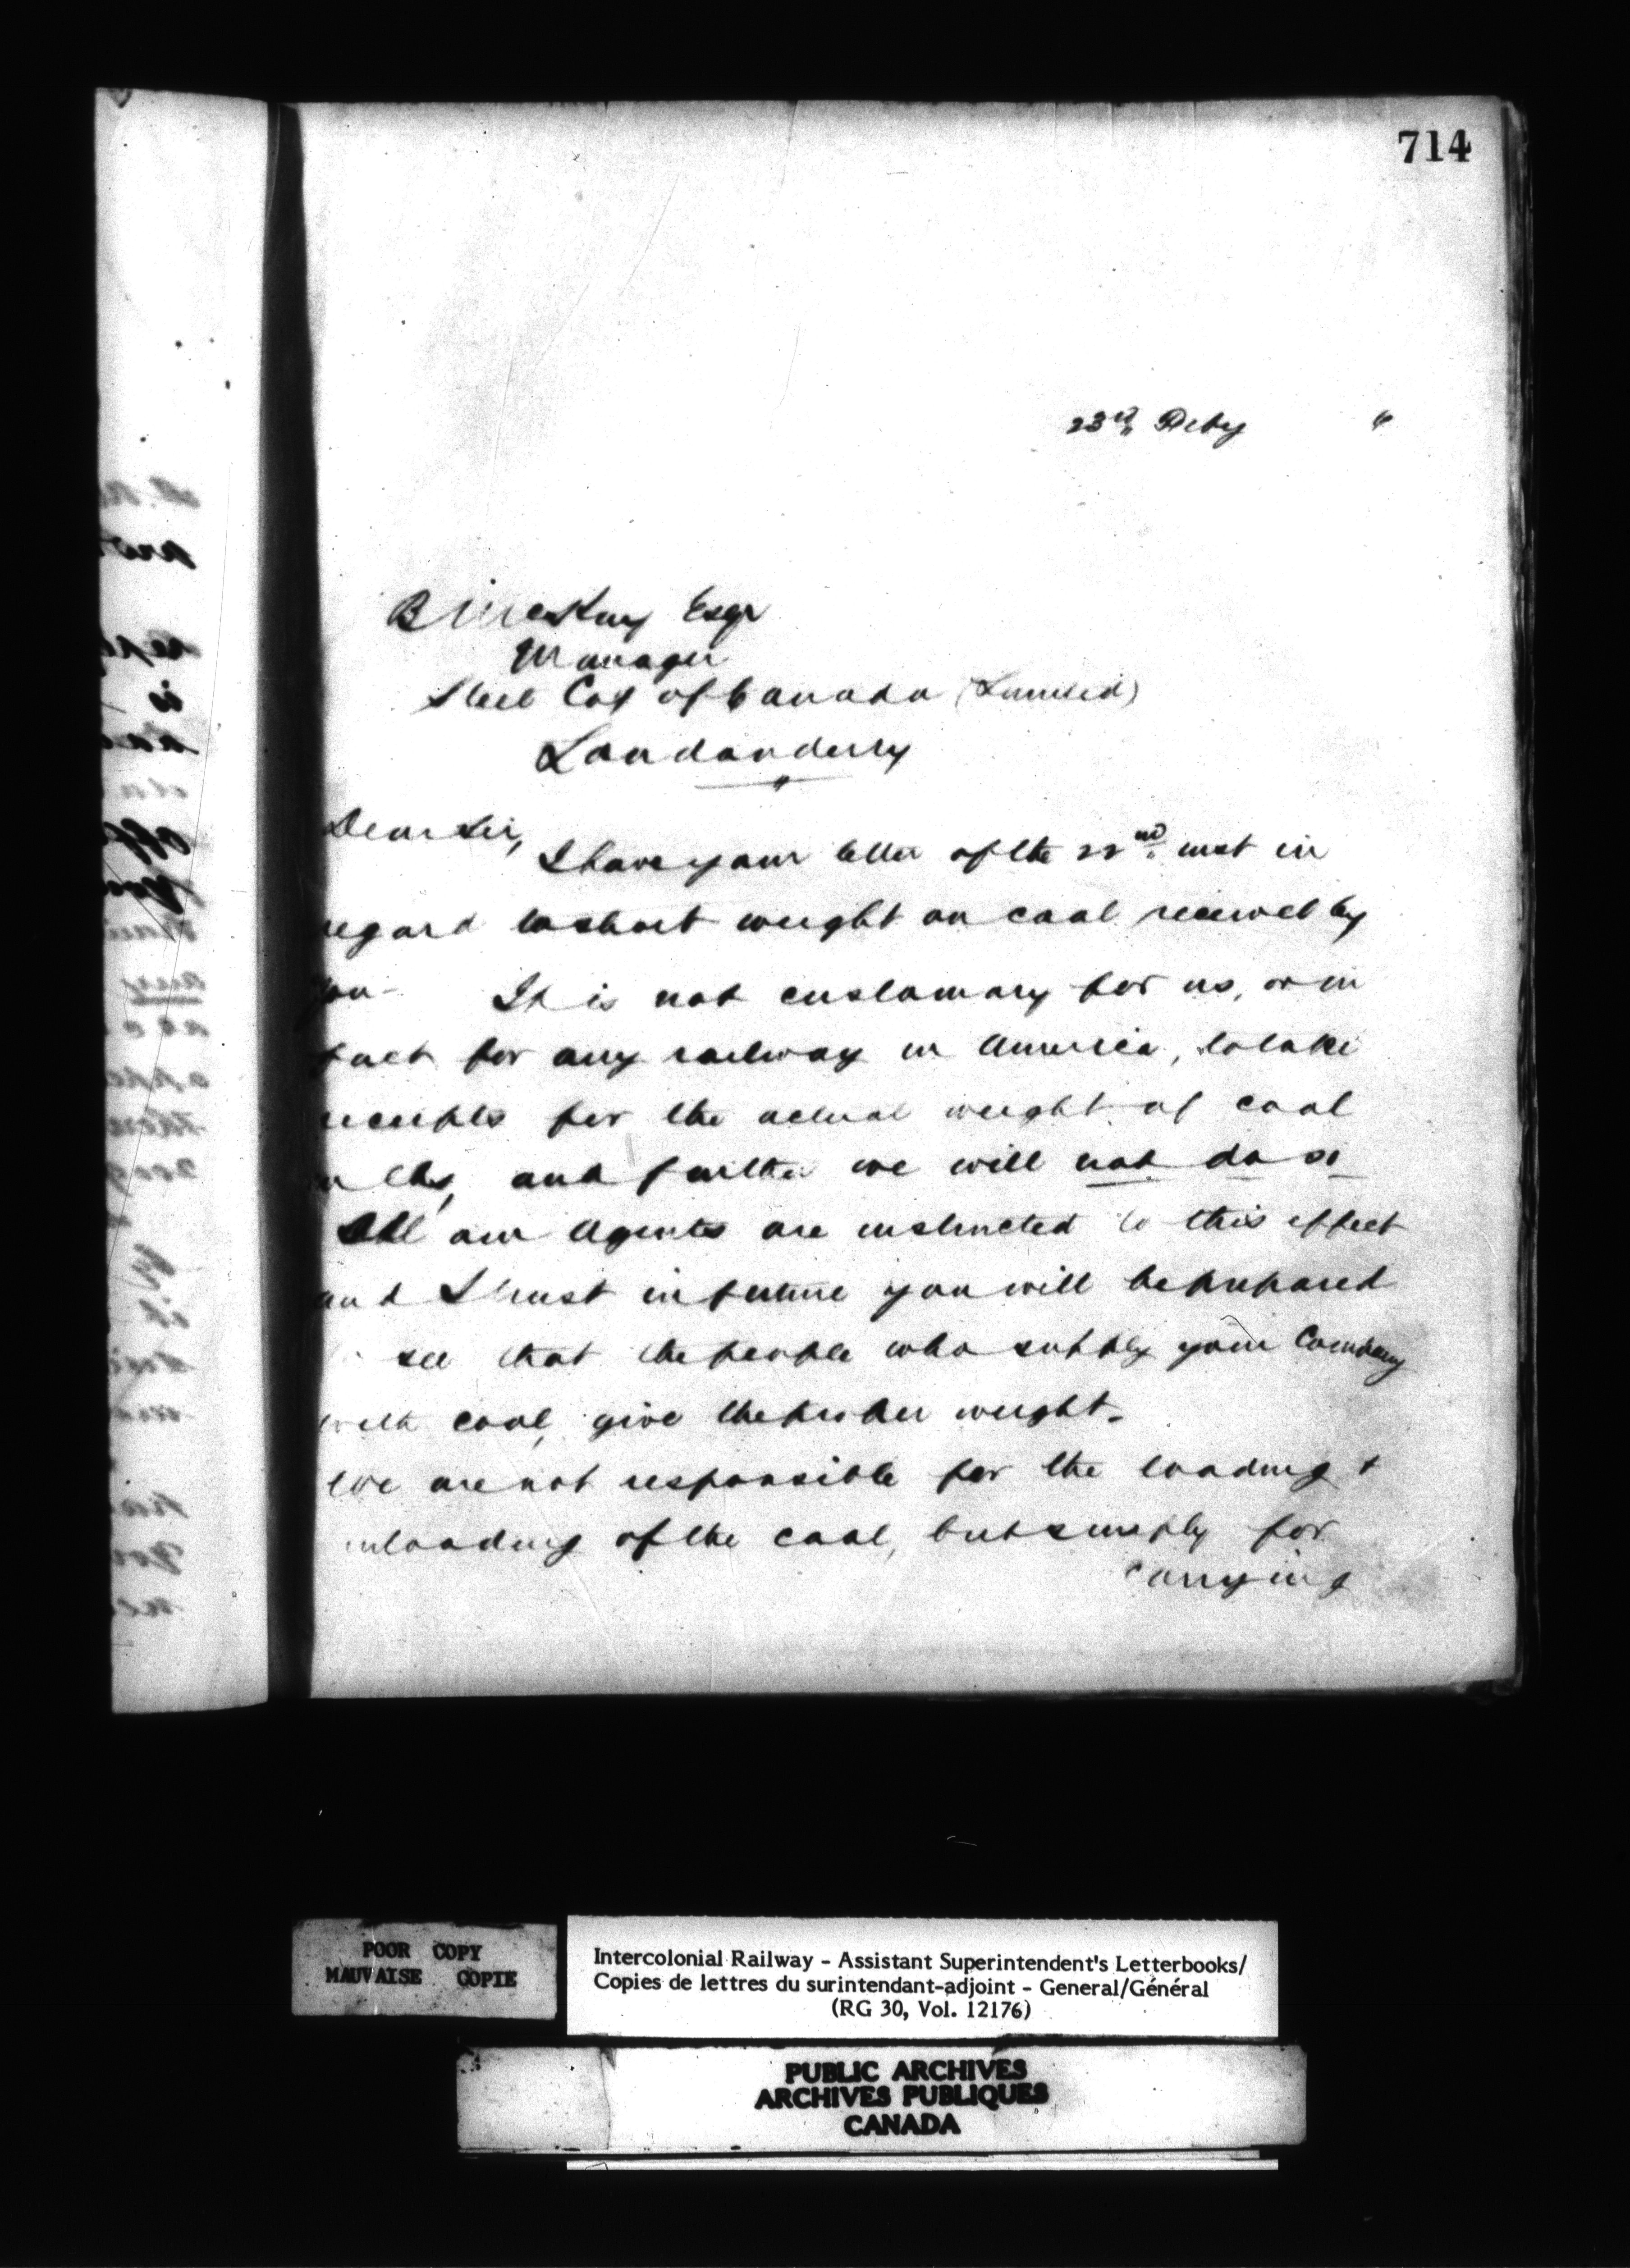 714
23rd Feby "
Esqr
Manager
Steel Coy of Canada (Limited)
Londonderry
Dear Sir,
I have your letter of the 22nd inst in
regard to short weight on coal received by
you- It is not customary for us, or in
fact for any railway in America, to take
receipts for the actual weight of coal
in lbs, and further we will not do so
All our Agents are instructed to this effect
and I trust in future you will be prepared
to see that the people who supply your Company
with coal, give the proper weight.
We are not responsible for the loading &
unloading of the coal, but simply for
carrying
POOR COPY
MAUVAISE COPIE
Intercolonial Railway - Assistant Superintendent's Letterbooks/
Copies de lettres du surintendant-adjoint - General/Général
(RG 30, Vol. 12176)
PUBLIC ARCHIVES
ARCHIVES PUBLIQUES
CANADA